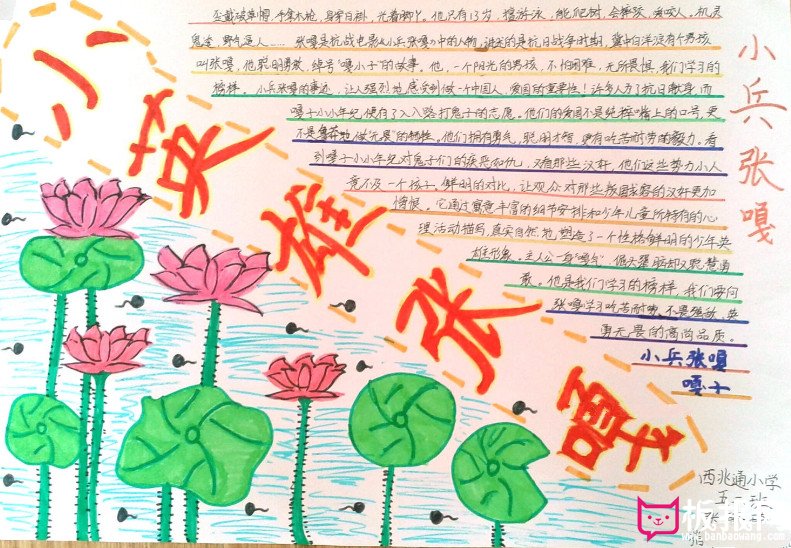 小英雄张嘎
歪戴破草帽，手拿木枪，身穿白褂，光着脚丫。他只有13岁，擅游泳，能爬树，会摔跤，爱咬人，机灵
鬼，野气逼人……张嘎是抗战电影《小兵张嘎》中的人物。讲述的是抗日战争时期，冀中白洋淀有个男孩
叫张嘎，他聪明勇敢，绰号“嘎小子”的故事。他，一个阳光的男孩，不怕困难，无所畏惧，我们学习的
榜样。小兵张嘎的事迹，让人强烈地感实到做一个中国人，爱国的重要性！许多人为了抗日献身，而
嘎子小小年纪便有了入八路打鬼子的志愿。他们的爱国不是纯粹嘴上的口号，更
不是鲁莽地做“无畏”的牺牲。他们拥有勇气，聪明才智，更有吃苦耐劳的毅力。看
到嘎子小小年纪对鬼子们的疾恶如仇，又看那些汉奸，他们这些势力小人
竟不及一个孩子。鲜明的对比，让观众对那些叛国求荣的汉奸更加
憎恨。它通过寓意丰富的细节安排和少年儿童所特有的心
理活动描写，真实自然地塑造了一个性格鲜明的少年英
雄形象。主人公一身“嘎气”，倔头犟脑却又聪慧勇
敢。他是我们学习的榜样，我们要向
张嘎学习吃苦耐劳，不畏强敌，英
勇无畏的高尚品质。
小兵张嘎
嘎子
小兵张嘎
西兆通小学
五
班
张
www.banbaowang.com